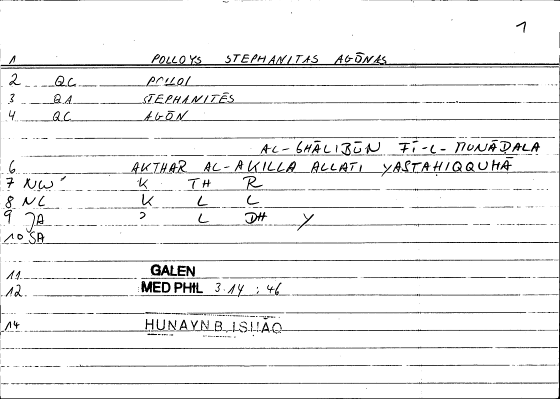 1
1 POLLOYS STEPHANITAS AGŌNAS
2 QC POLLOI
3 QA STEPHANITĒS
4 QC AGŌN
AL-GHĀLIBŪN FĪ-L-MUNĀḌALA
6 AKTHAR AL-AKILLA ALLATI YASTAHIQQUHĀ
7 NW K TH R
8 NC K L L
9 JA ʾ L DH Y
10 SA
11 GALEN
12 MED PHIL 3.14 : 46
14 HUNAYN B. ISHĀQ